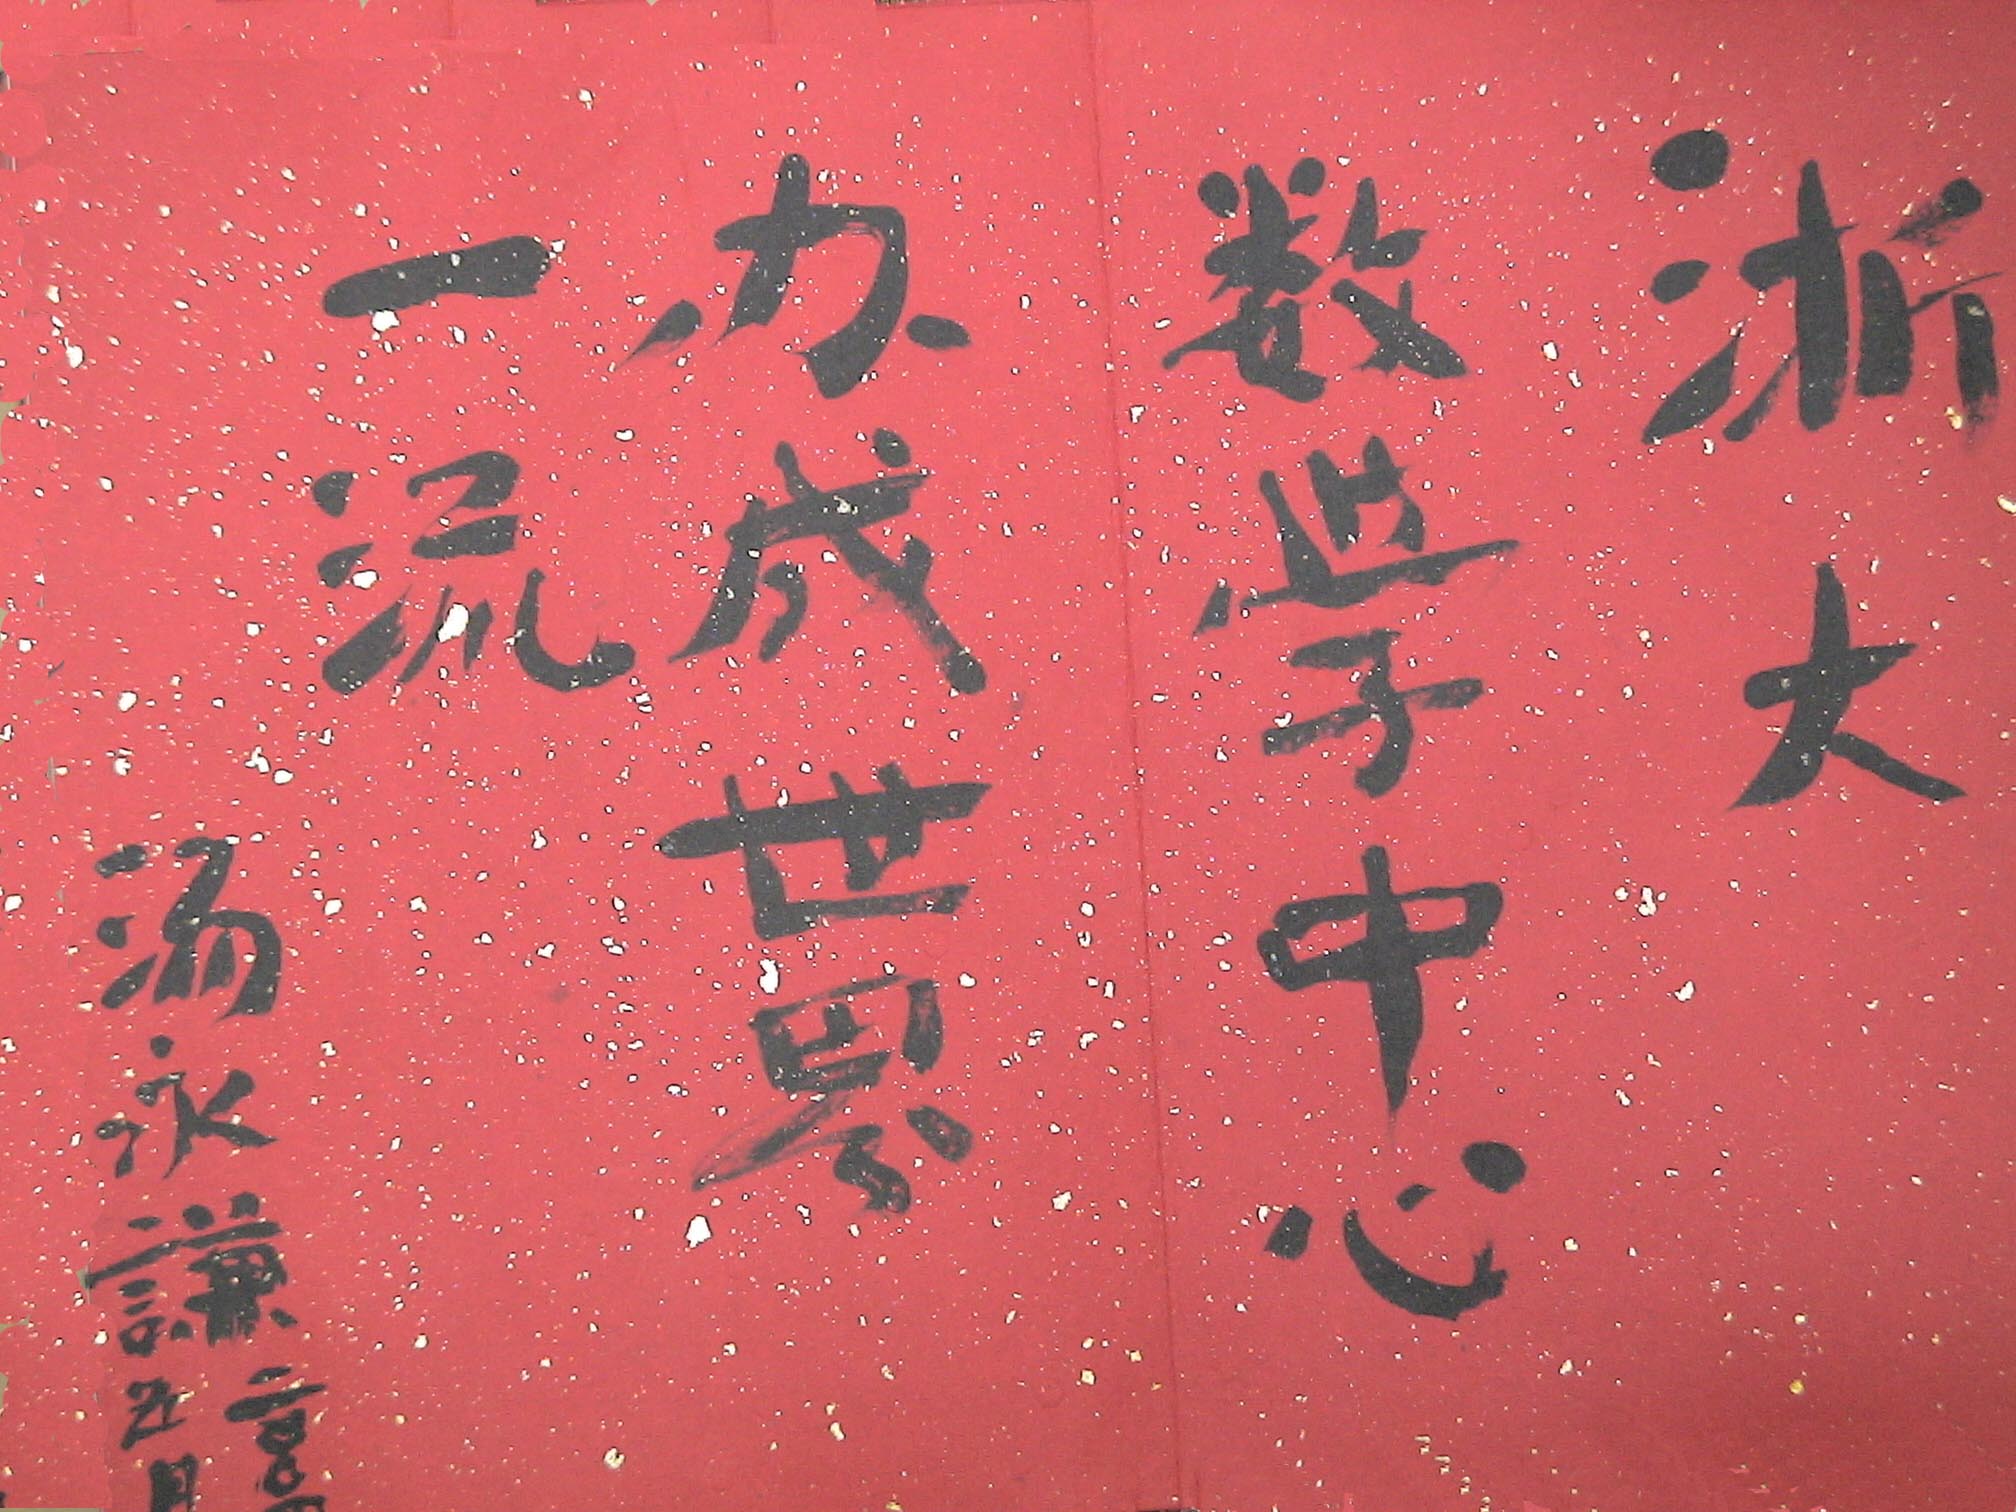 浙大
数学中心
办成世界
一流
汤永謙
五月